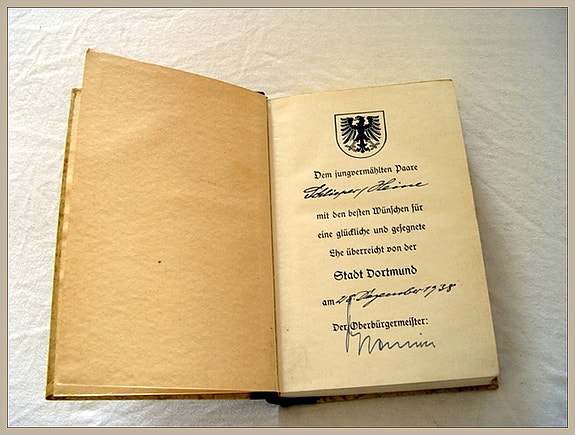 Dem jungvermählten Paare
Schlieper / Heine
mit den besten Wünschen für
eine glückliche und gesegnete
Ehe überreicht von der
Stadt Dortmund
am 28. Dezember 1938
Der Oberbürgermeister: